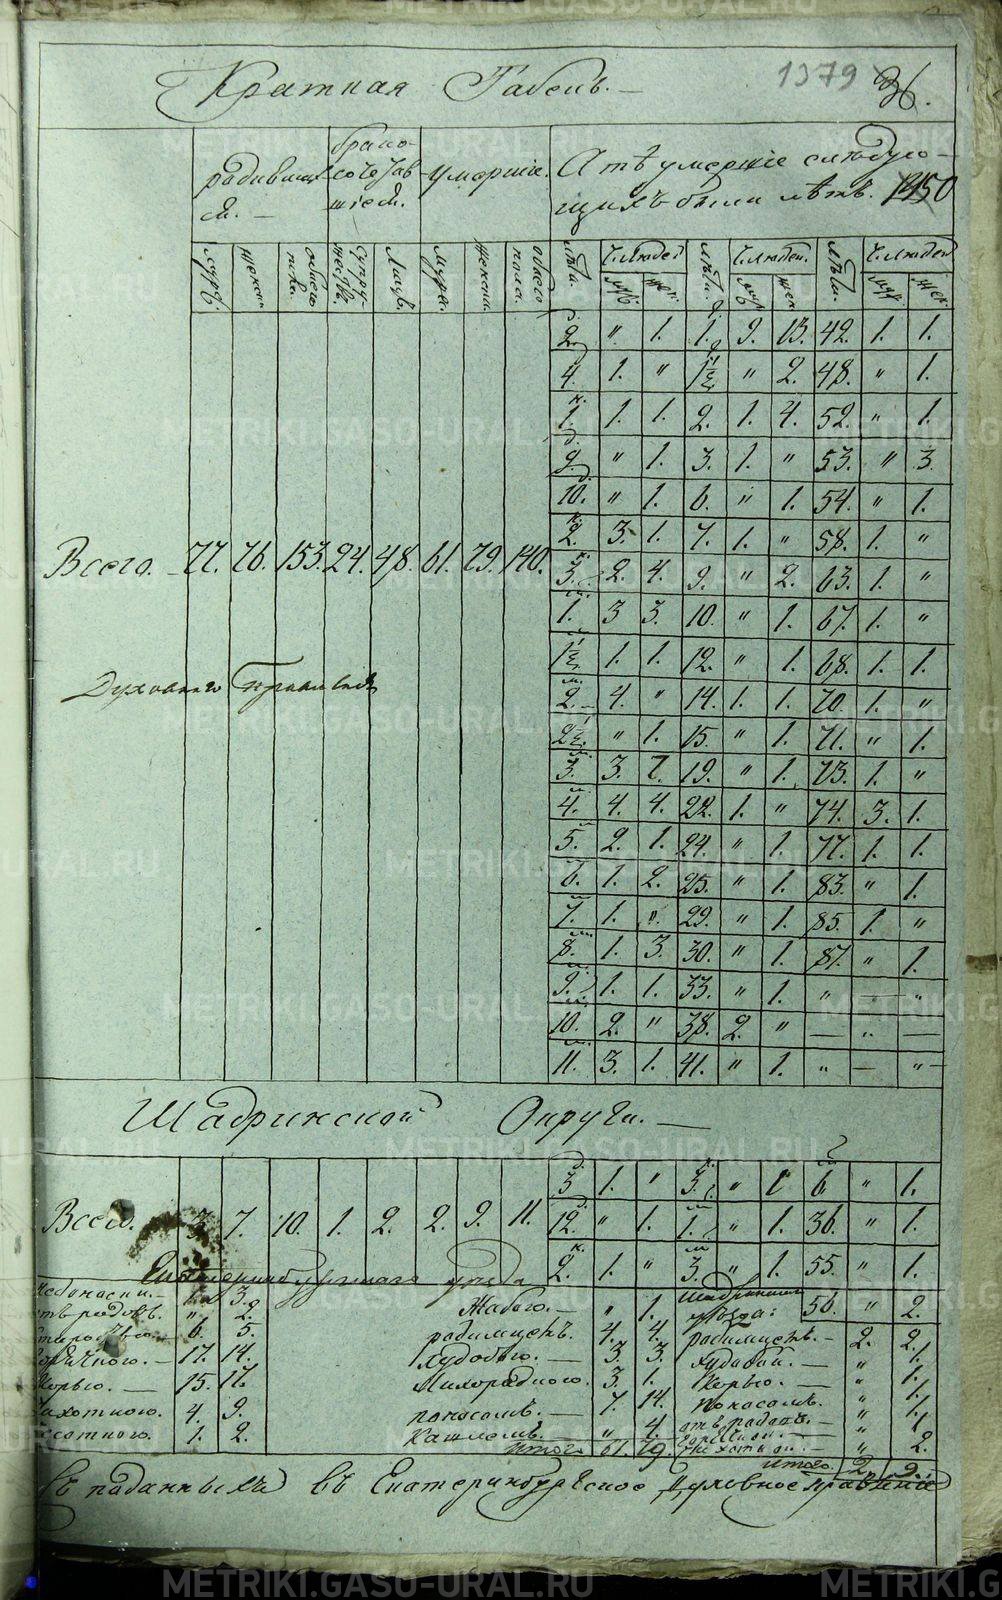 1379 36.
Краткая Табель. —
родивших
ся. —
брако-
сочетав
шіеся.
умершіе.
А тѣ умершіе следую-
щихъ были лѣтъ. 150
мужс. женск. обоего пола. супружествъ. лицъ. мужес. женска. обоего пола. лѣты. Ч. людей муж. жен. лѣты. Ч. людей. муж. жен. лѣты. Ч. людей муж. жен.
2. " 1. 1. 9. 13. 42. 1. 1.
4. 1. " 1½ " 2. 48. " 1.
1. 1. 1. 2. 1. 4. 52. " 1.
9. " 1. 3. 1. " 53. " 3.
10. " 1. 6. " 1. 54. " 1.
2. 3. 1. 7. 1. " 58. 1. "
Всего. 77. 76. 153. 24. 48. 61. 79. 140.
3. 2. 4. 9. " 2. 63. 1. "
1. 3 3. 10. " 1. 67. 1. "
1½ 1. 1. 12. " 1. 68. 1. 1.
Духовнаго Правленія
2. 4. " 14. 1. 1. 70. 1. "
2½ " 1. 15. " 1. 71. " 1.
3. 3. 7. 19. " 1. 73. 1. "
4. 4. 4. 22. 1. " 74. 3. 1.
5. 2. 1. 24. " 1. 77. 1. 1.
6. 1. 2. 25. " 1. 83. " 1.
7. 1. " 29. " 1. 85. 1. "
8. 1. 3. 30. " 1. 87. " 1.
9. 1. 1. 33. " 1. " — "
10. 2. " 38. 2. " — " —
11. 3. 1. 41. " 1. " — " —
Шадринской Округи. —
3 1. " 3. " 1 6. " 1.
Всего. 3. 7. 10. 1. 2. 2. 9. 11.
12. " 1. 1. " 1. 36. " 1.
2. 1. " 3. " 1. 55. " 1.
Екатеринбургскаго уезда
56. " 2.
3. Жабою. — " 1. Шадринскаго уѣзда:
отъ родовъ. " 2. родимцемъ. 4. 4. родимцемъ. — 2. 2.
6. 5. худобою. — 3. 3. худобой. — " 1.
горячкою. — 17. 14. Лихорадкою. 3. 1. Корью. — " 1.
Корью. — 15. 17. поносомъ. — 7. 14. поносомъ. " 1.
чихоткою. 4. 9. Кашлемъ. — " 4. отъ родовъ. — " 1.
1. 2. Итого 61. 79. " 2.
итого. 2. 9.
съ поданныхъ въ Екатеринбургское Духовное правленіе
METRIKI.GASO-URAL.RU